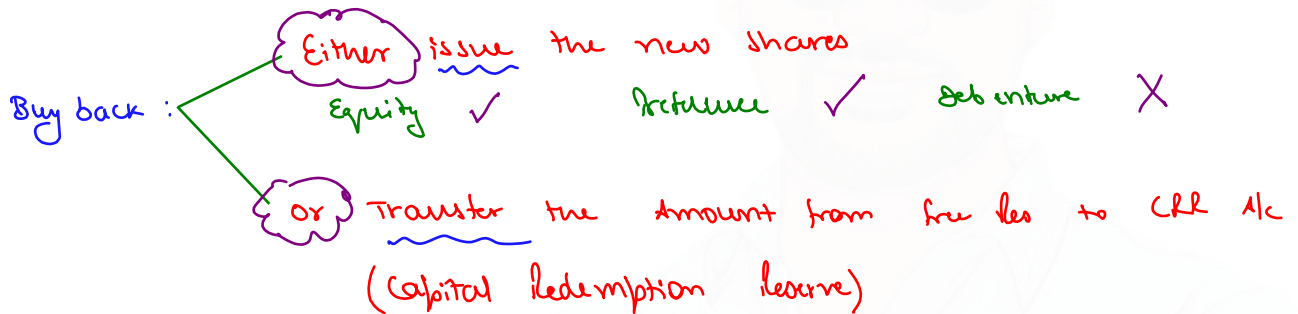 Either issue the new shares
Buy back : Equity ✓ Preference ✓ Debenture X
or Transfer the Amount from free Res to CRR A/c
(Capital Redemption Reserve)